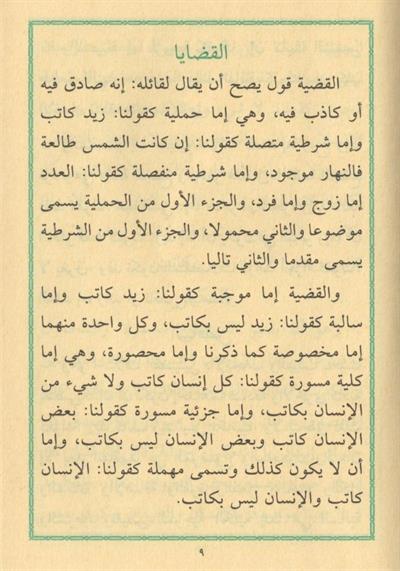 القضايا
القضية قول يصح أن يقال لقائله: إنه صادق فيه
أو كاذب فيه، وهي إما حملية كقولنا: زيد كاتب
وإما شرطية متصلة كقولنا: إن كانت الشمس طالعة
فالنهار موجود، وإما شرطية منفصلة كقولنا: العدد
إما زوج وإما فرد، والجزء الأول من الحملية يسمى
موضوعا والثاني محمولا، والجزء الأول من الشرطية
يسمى مقدما والثاني تاليا.
والقضية إما موجبة كقولنا: زيد كاتب وإما
سالبة كقولنا: زيد ليس بكاتب، وكل واحدة منهما
إما مخصوصة كما ذكرنا وإما محصورة، وهي إما
كلية مسورة كقولنا: كل إنسان كاتب ولا شيء من
الإنسان بكاتب، وإما جزئية مسورة كقولنا: بعض
الإنسان كاتب وبعض الإنسان ليس بكاتب، وإما
أن لا يكون كذلك وتسمى مهملة كقولنا: الإنسان
كاتب والإنسان ليس بكاتب.
٩